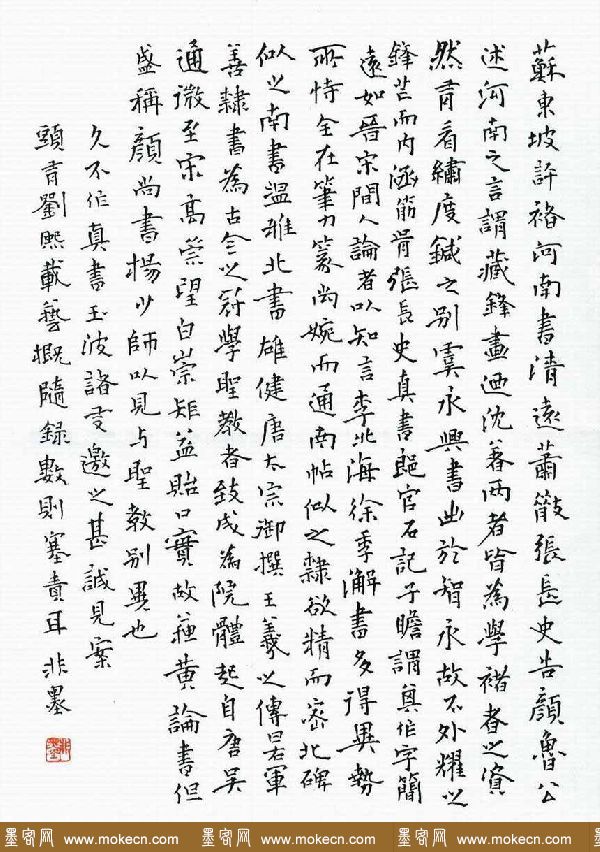 蘇東坡評褚河南書清遠蕭散張長史告顏魯公
述河南之言謂藏鋒畫迺沈著兩者皆為學褚者之資
然有看繡度鍼之別虞永興書出於智永故不外耀
鋒芒而內涵筋骨張長史真書郎官石記子瞻謂真作字簡
遠如晉宋間人論者以知言李北海徐季海書多得異勢
所恃全在筆力篆尚婉而通南帖似之隸欲精而密北碑
似之南書溫雅北書雄健唐太宗御撰王羲之傳右軍
善隸書為古今之冠學聖教者致成為院體起自唐吳
通微至宋高崇望白崇矩益貽口實故蘇黃論書但
盛稱顏尚書楊少師以見與聖教別異也
久不作真書玉波諸史邀之甚誠見案
頭有劉熙載藝概隨錄數則塞責耳非墨
墨客网 www.mokecn.com 墨客网 www.mokecn.com 墨客网 www.mokecn.com